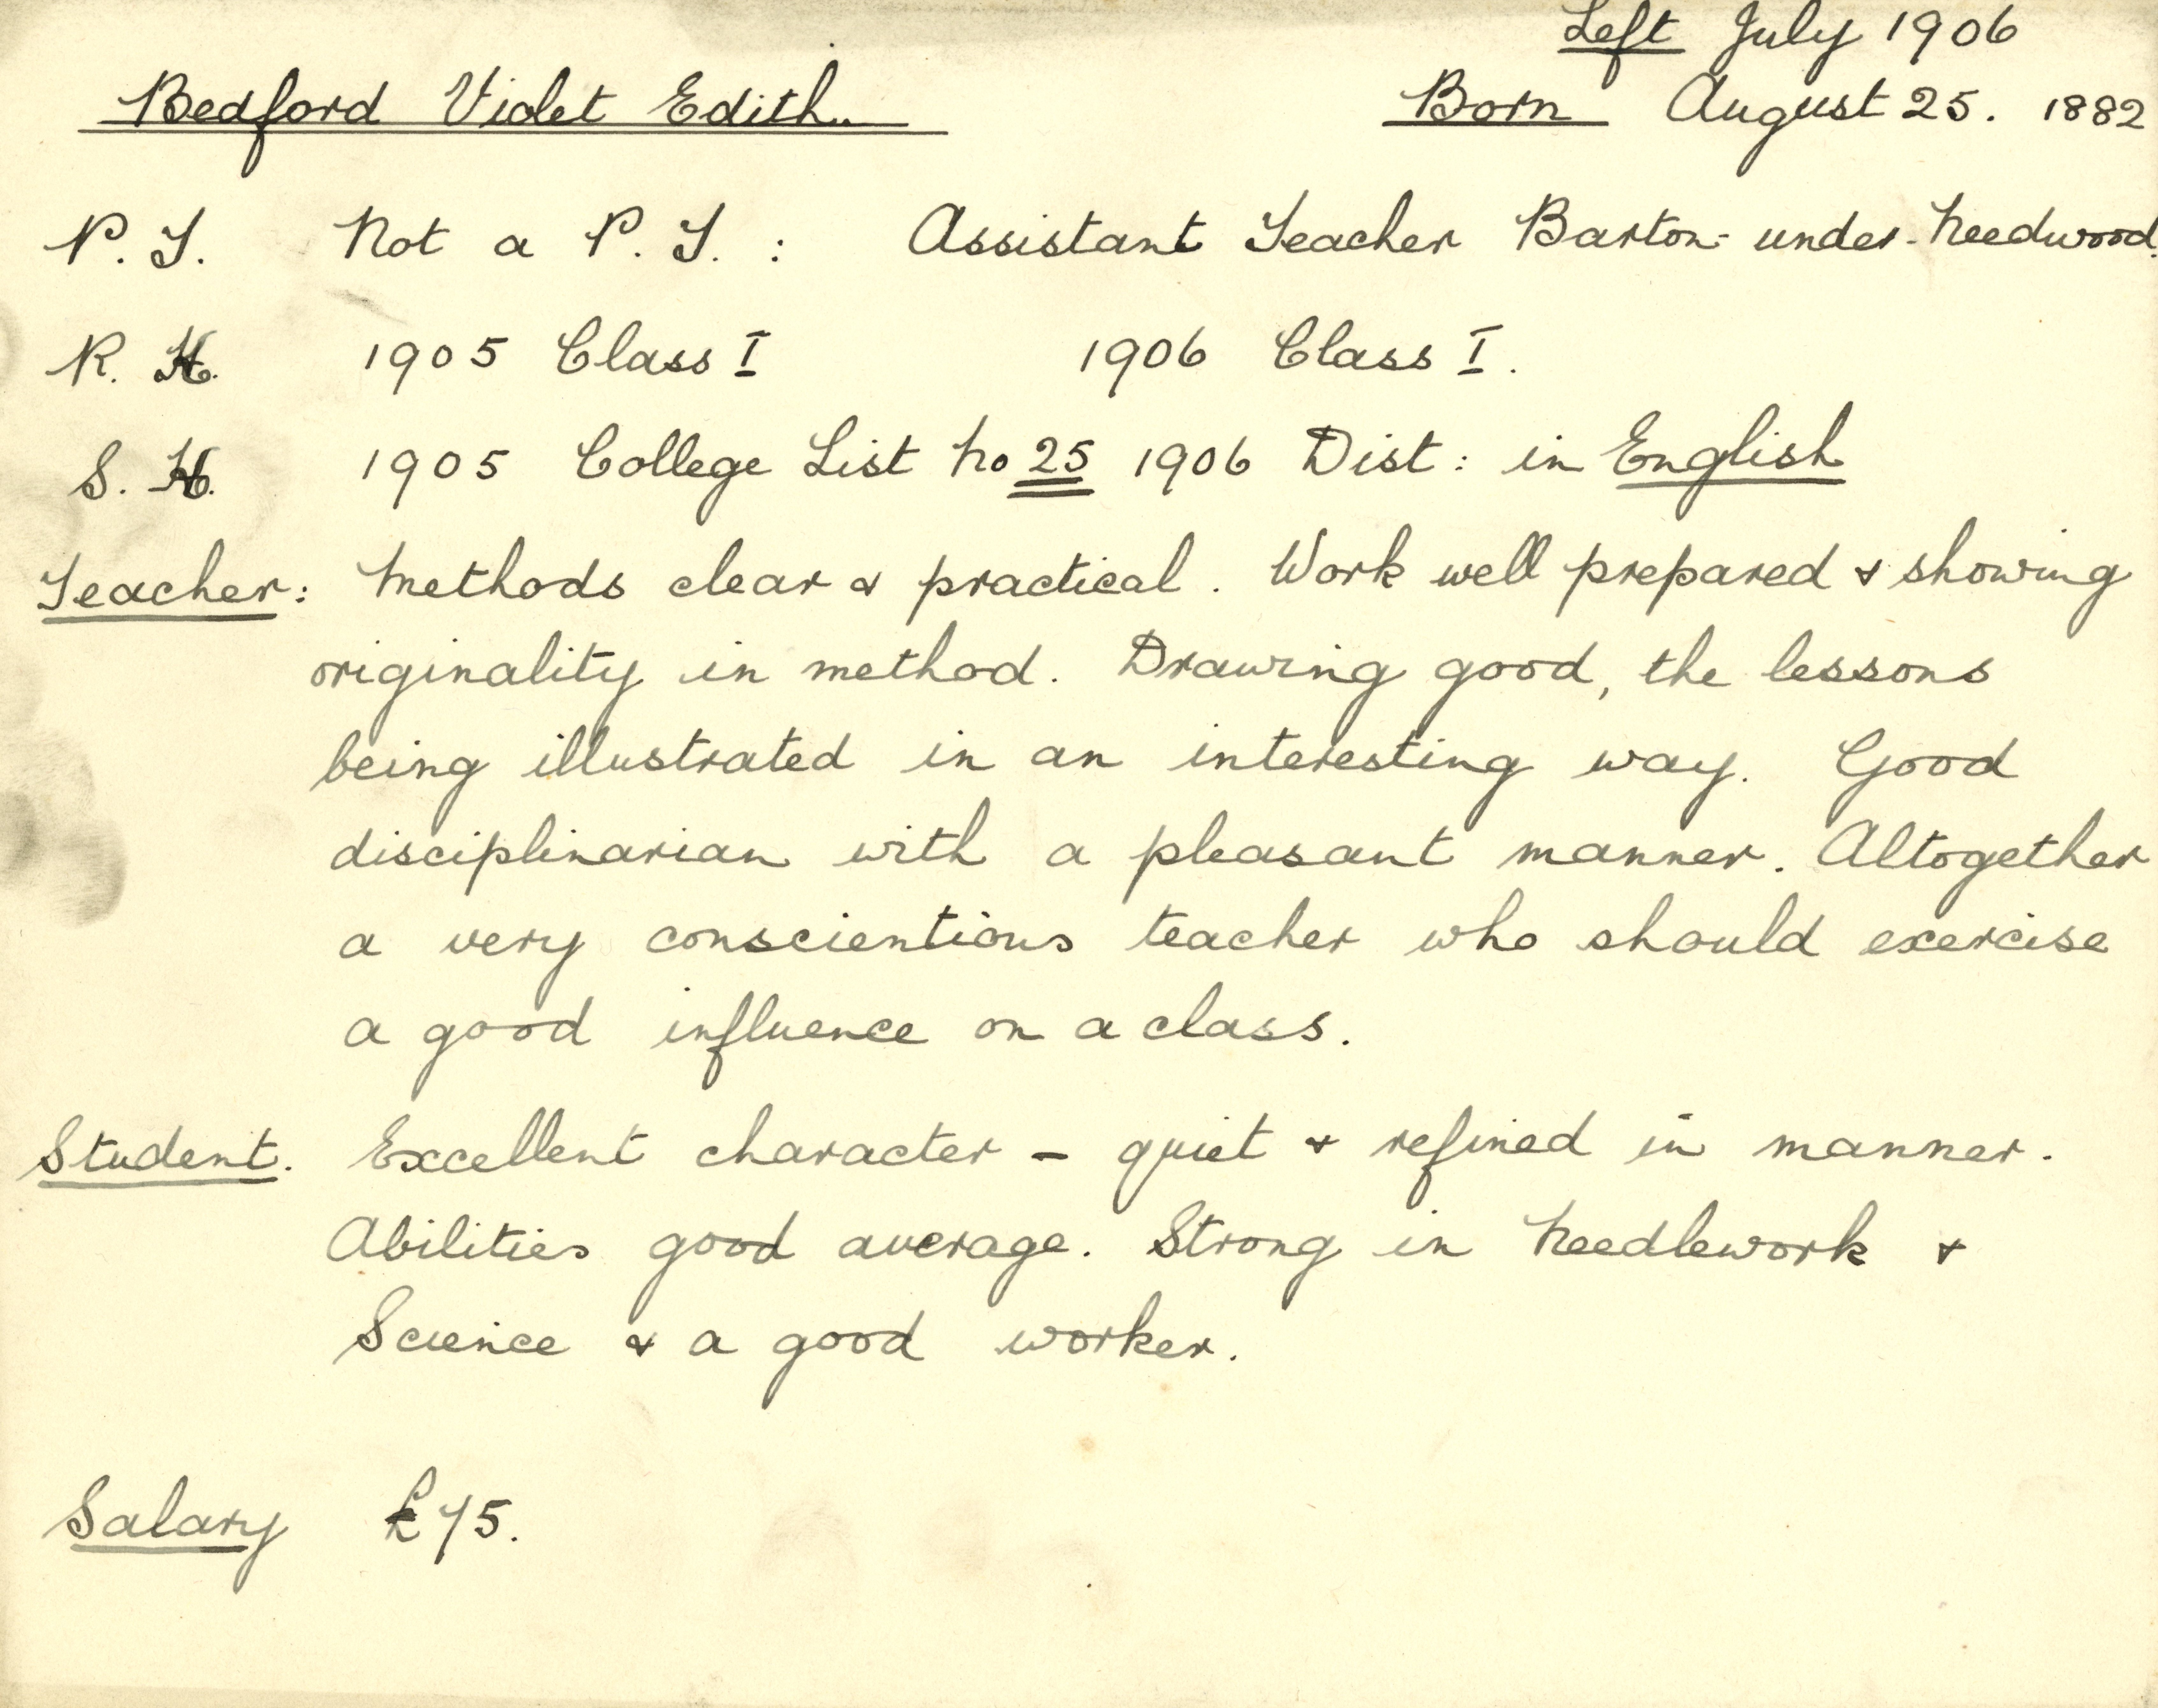 Left July 1906
Bedford Violet Edith.
Born August 25. 1882
P. T. Not a P. T. : Assistant Teacher Barton-under-Needwood.
R. K. 1905 Class I 1906 Class I.
S. K. 1905 College List No 25 1906 Dist: in English
Teacher: Methods clear & practical. Work well prepared & showing
originality in method. Drawing good, the lessons
being illustrated in an interesting way. Good
disciplinarian with a pleasant manner. Altogether
a very conscientious teacher who should exercise
a good influence on a class.
Student. Excellent character - quiet & refined in manner.
Abilities good average. Strong in Needlework &
Science & a good worker.
Salary £75.